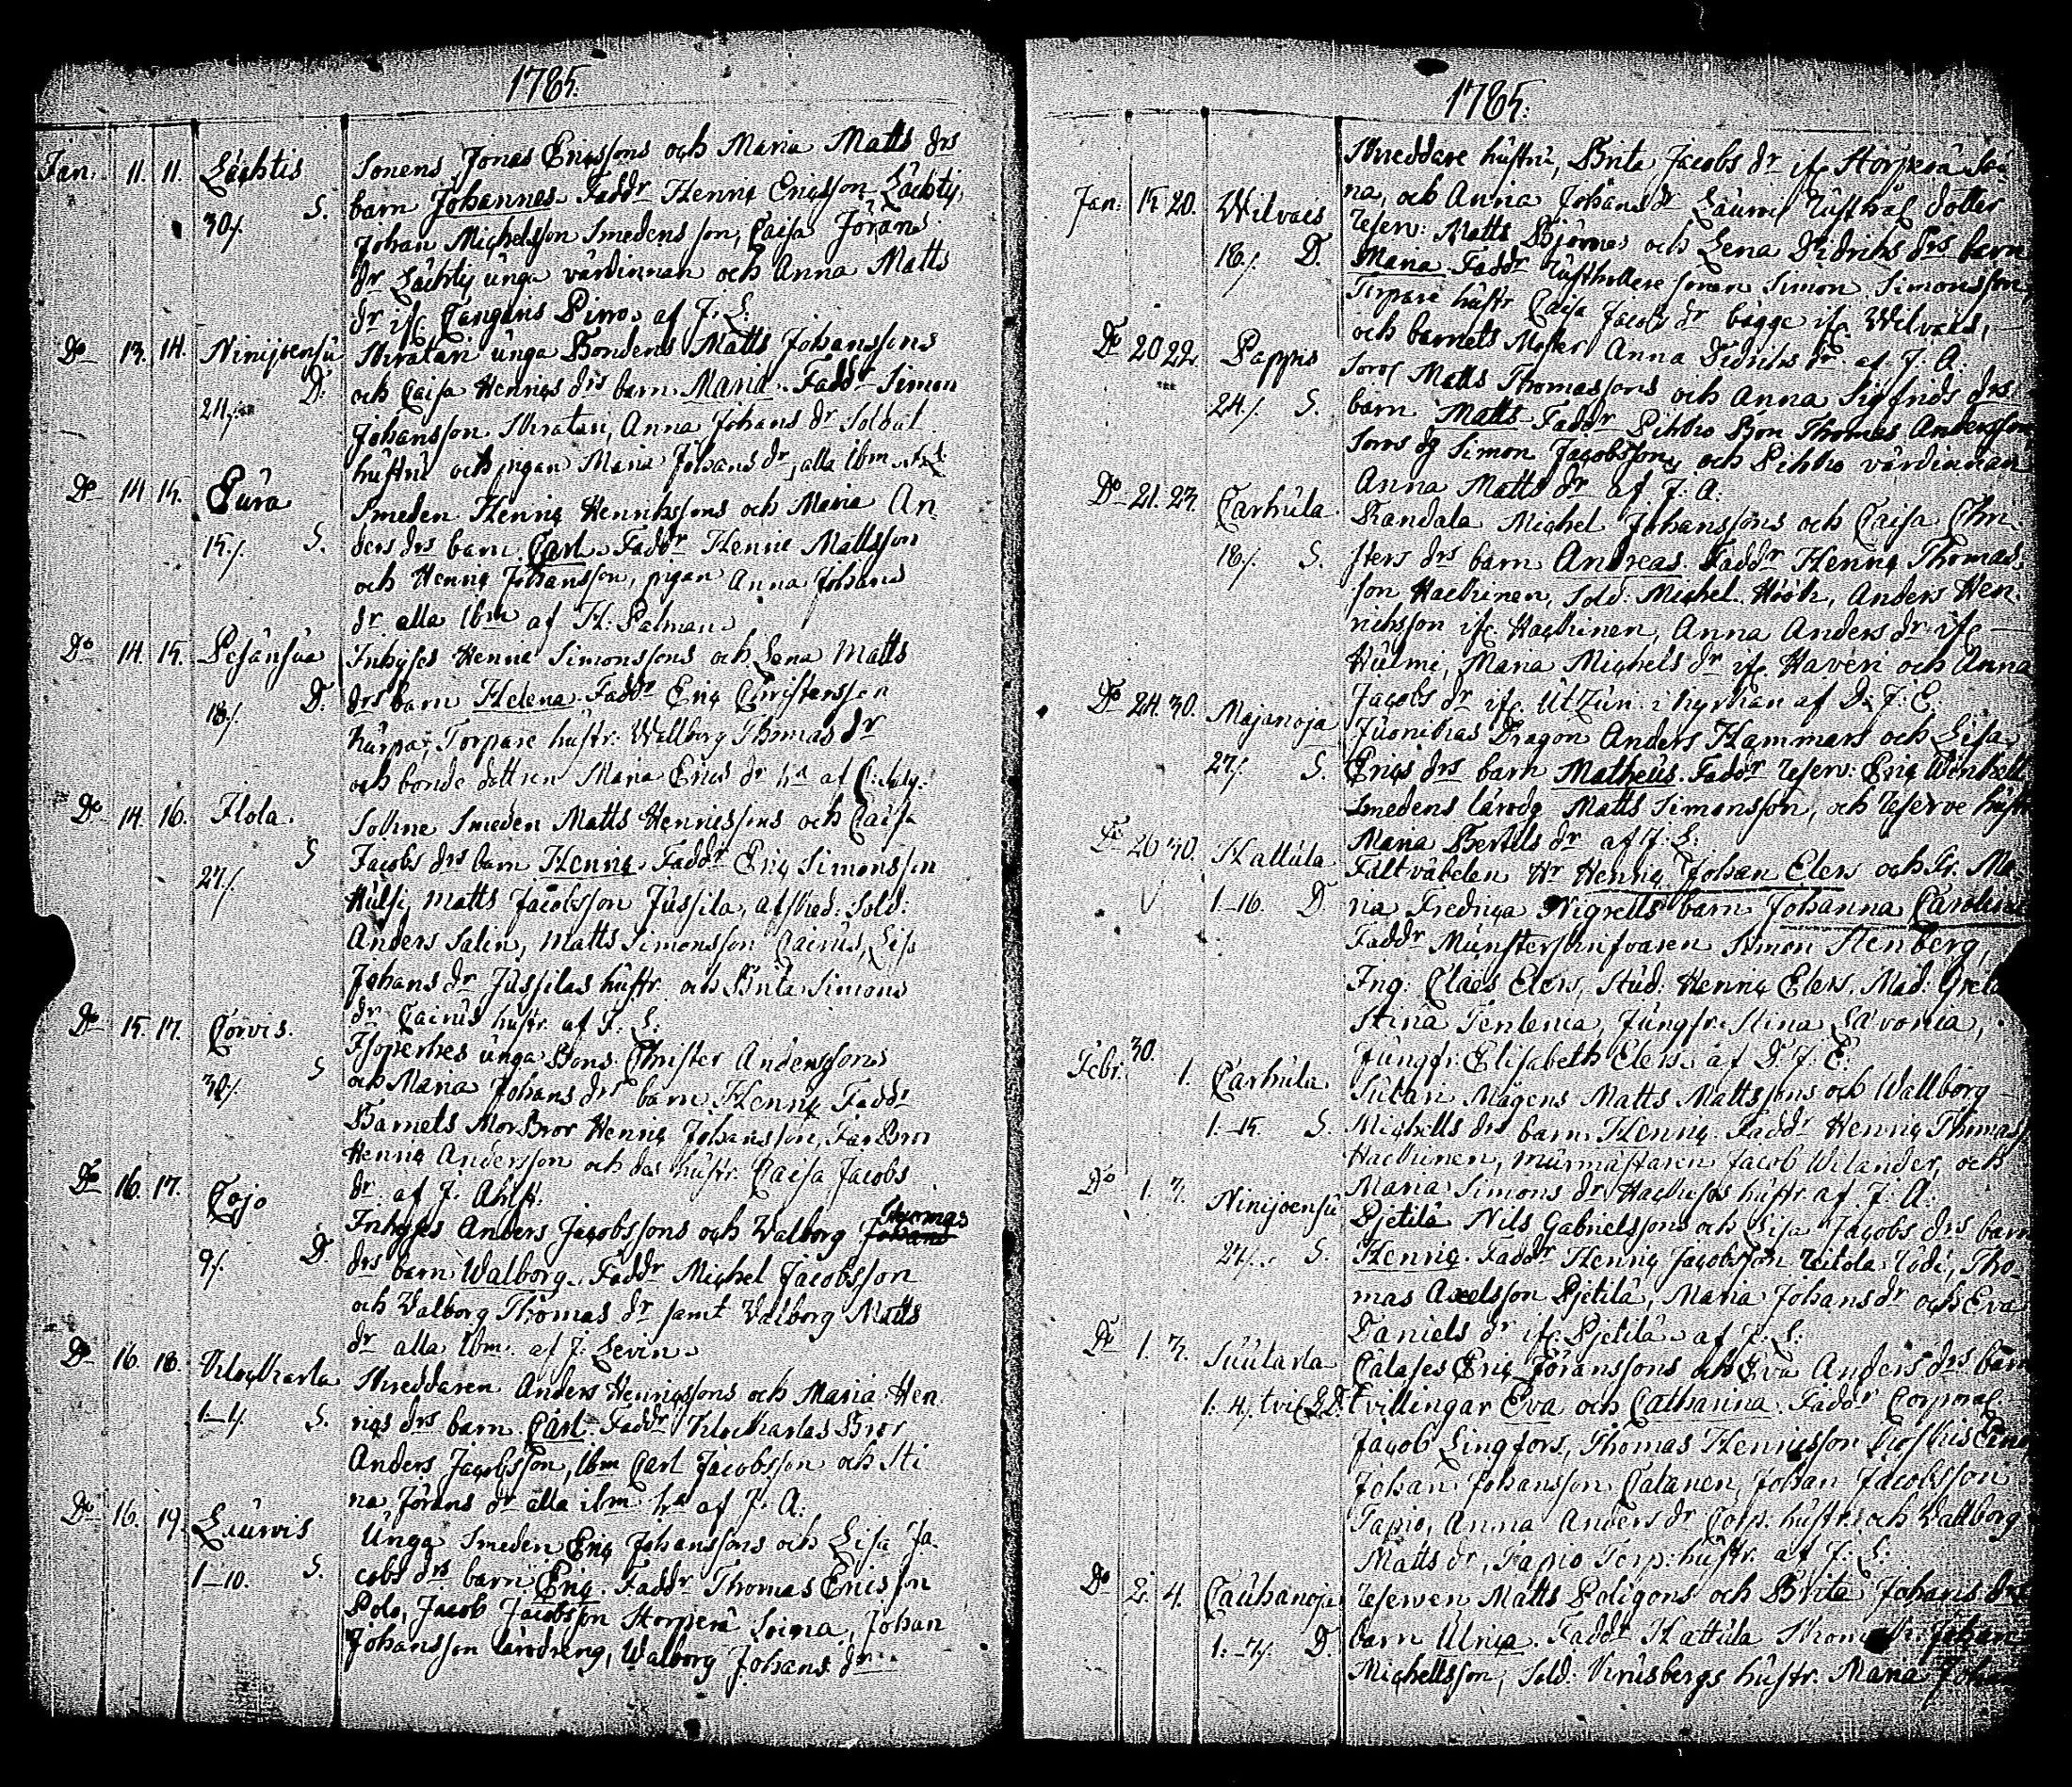 1785.
Jan. 11. 11. Lächtis Sonens Jonas Ericssons och Maria Matts drs
30/. S. barn Johannes. Faddr Henric Ericsson Lächtis,
Johan Michelsson Smedens son, Caisa Jörans
dr Lächtis unga värdinnan och Anna Matts
dr ifr. Cangaris Pirro. af J. L.
Do 13. 14. Ninijoensu Skratari unga Bondens Matts Johanssons
D. och Caisa Henrics drs barn Maria. Faddr Simon
Johansson Skratari, Anna Johans dr Soldat
hustru och pigan Maria Johans dr, alla ibm
Do 14 15. Eura Smeden Henric Henrikssons och Maria An
15/. S. ders drs barn Carl. Faddr Henric Mattsson
och Henric Johansson, pigan Anna Johans
dr alla ibm af H. Palman.
Do 14. 15. Pesänsuo Inhyses Henric Simonssons och Lena Matts
18/. D. drs barn Helena. Faddr Eric Christersson
Torpare hustr. Wallborg Thomas dr
och bonde dottren Maria Erics dr
Do 14. 16. Flola. Smeden Matts Henricssons och Caisa
27/. S Jacobs drs barn Henric. Faddr Eric Simonsson
Hulsi, Matts Jacobsson Jussila, afsked: Sold:
Anders Salin, Matts Simonsson Cairus, Lisa
Johans dr Jussilas hustr. och Brita Simons
dr Cairus hustr. af J. L:
Do 15. 17. Corvis. unga Bons. Christer Anderssons
30/. S och Maria Johans drs barn Henric Faddr
Barnets MorBror Henric Johansson, FarBror
Henric Andersson och das hustr. Caisa Jacobs
dr. af J. Ahlst.
Do 16. 17. Cojo Inhyses Anders Jacobssons och Walborg Thomas
9/. D. drs barn Walborg. Faddr Michel Jacobsson
och Walborg Thomas dr samt Walborg Matts
dr alla ibm. af J. Levin.
Do 16. 18. Klockarla Skreddaren Anders Henricssons och Maria Hen
1.— S. rics drs barn Carl. Faddr Klockarlas Bror
Anders Jacobsson, ibm Carl Jacobsson och Sti
na Jörans dr alla ibm af J. A.
Do 16. 19. Lauvois Unga Smeden Eric Johanssons och Lisa Ja
1—10. S. cobs drs barn Eric. Faddr Thomas Ericsson
Polo, Jacob Jacobsson Storperä Soina, Johan
Johansson lärodreng, Walborg Johans dr
1785.
Skreddare hustru, Brita Jacobs dr ifr Storperä Soi
na, och Anna Johans dr Lauvois Rusthål dotter
Jan: 15 20. Wilvais Reserv: Matts Björnes och Lena Didrichs drs barn
18/. D. Maria. Faddr Rusthollere sonen Simon Simonsson,
Torpare hustr Caisa Jacobs dr bägge ifr. Wilvais,
och barnets Moster Anna Didrichs dr. af J. A.
Do 20 22. Pappis Soroi Matts Thomassons och Anna Sigfrids drs
24./. S. barn Matts. Faddr Pihko Bon Thomas Andersson
Sorrs dg Simon Jacobsson, och Pihko värdinnan
Anna Matts dr af J. A.
Do 21. 23. Carhula Randala Michel Johanssons och Caisa Chri
18/. S. sters drs barn Andreas. Faddr Henric Thomas
son Hackinen, Sold: Michel Höök, Anders Hen
riksson ifr. Hackinen, Anna Anders dr ifr
Hulmi, Maria Michels dr ifr. Haveri och Anna
Jacobs dr ifr. Utzuri i kyrkan af D. J. E.
Do 24. 30. Majanoja Juonikas Dragon Anders Hammars och Lisa
27/. S. Erics drs barn Matheus. Faddr Reserv: Eric
Smedens lärodg Matts Simonsson, och Reserve hustr
Maria Bertels dr af J. L:
Do 26 30. Kattula Fältväbelen Hr Henric Johan Elers och Fr. Ma
1.—16. D. ria Fredrica Nigrells barn Johanna Carolina
Faddr Munsterskrifvaren Simon Stenberg,
Ing: Claes Elers, Stud: Henric Elers, Mad: Greta
Stina Tenlenia, Jungfr. Stina Savonia,
Jungfr: Elisabeth Elers. af D. J. E:
Febr. 30. 1. Carhula Sutari Mågens Matts Mattssons och Wallborg
1.—15. S. Michells drs barn Henric. Faddr Henric Thomass
Hackinen, murmästaren Jacob Welander, och
Maria Simons dr Hackises hustr. af J. A.
Do 1. 3. Ninijoensu Pjetilä Nils Gabrielssons och Lisa Jacobs drs barn
S. Henric. Faddr Henric Jacobsson Tho
mas Axelsson Pjetilä, Maria Johans dr och Eva
Daniels dr ifr. Pjetilä. af J. L:
Do 1. 3. Suutarla Calases Eric Jöranssons och Eva Anders drs barn
1. 4/. tvil: D. tvillingar Eva och Catharina. Faddr Corporal
Jacob Lingfors, Thomas Henricsson
Johan Johansson Calanen, Johan Jacobsson
Tapio, Anna Anders dr Corp. hustr. och Wallborg
Matts dr, Tapio Torp. hustr. af J. L:
Do 2. 4. Cauhanoja Reserven Matts Poligons och Brita Johans drs
1.—7/. D. barn Ulrica. Faddr Kattula Johan
Michellsson, Sold: Krusbergs hustr. Maria Johans